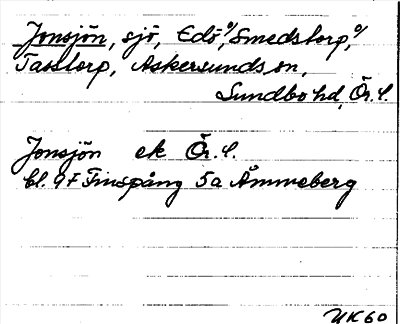 Jonsjön, sjö, Edö o/, Smedstorp, o/
Tasstorp, Askersunds sn,
Sundbo hd, Ör. l.
Jonsjön ek Ör. l.
bl. 9F Finspång 5a Åmmeberg
UK60